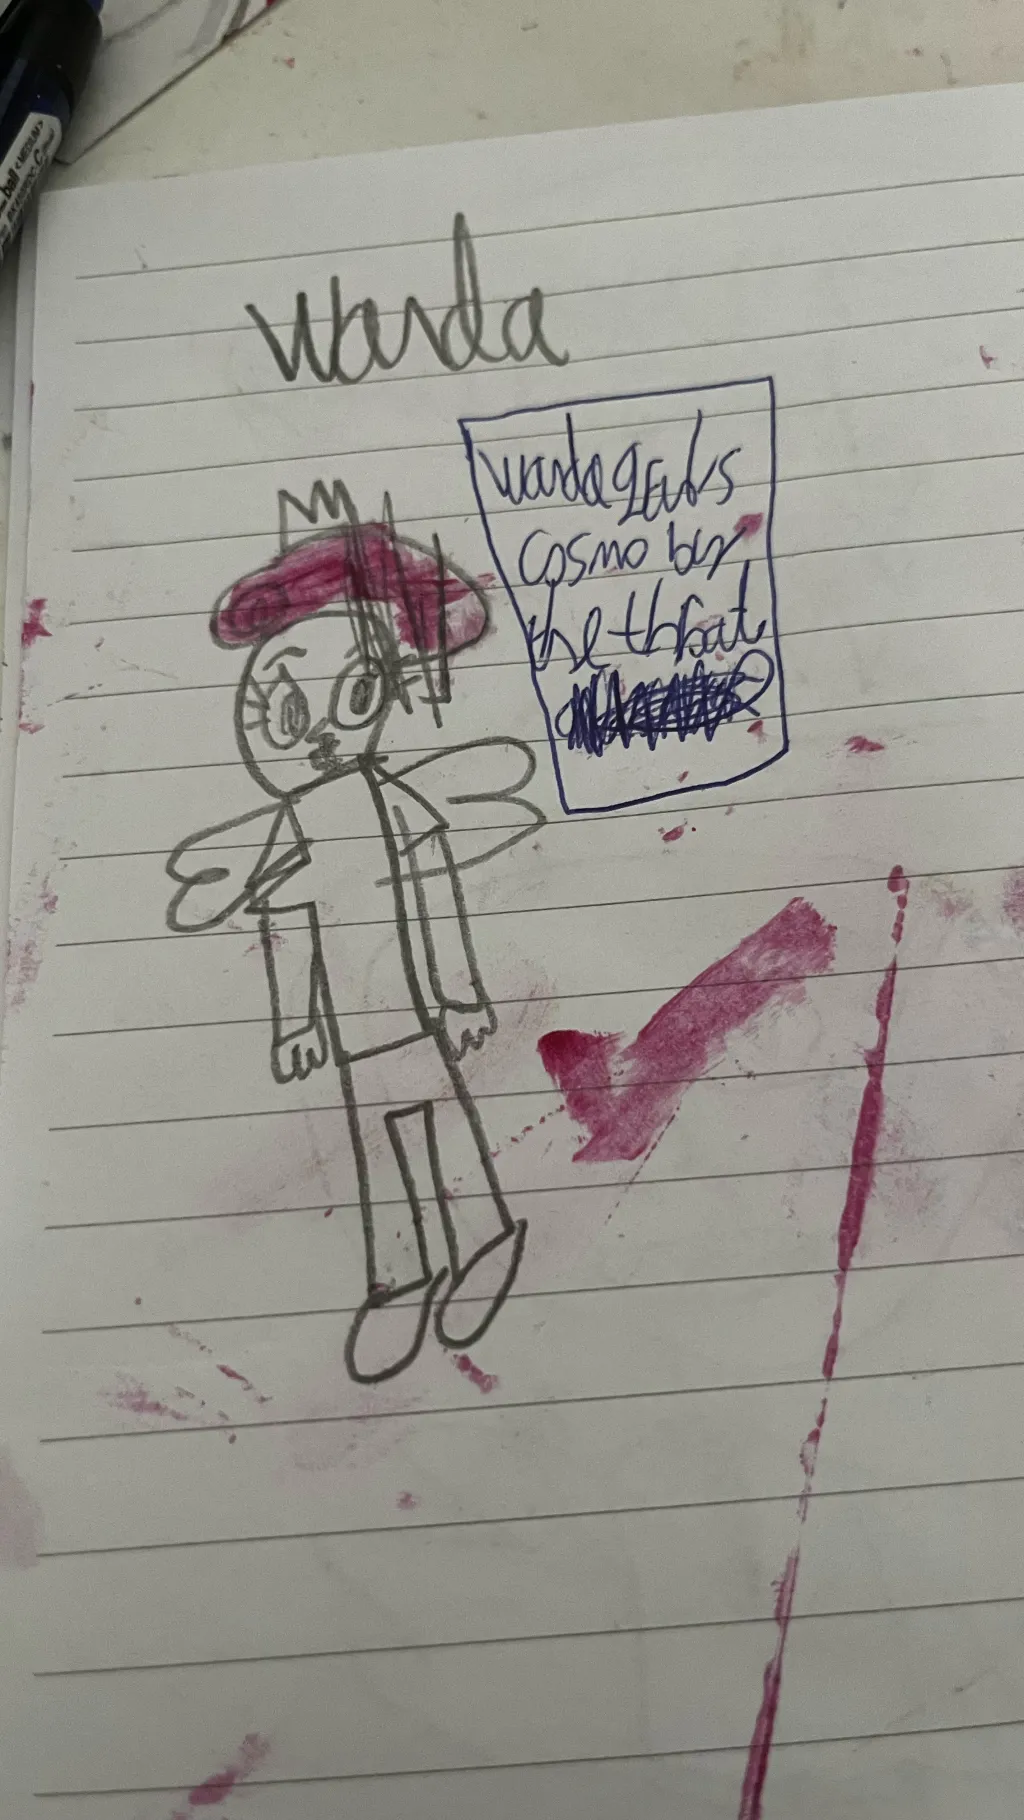 warda
warda grabs
cosmo by
the throat